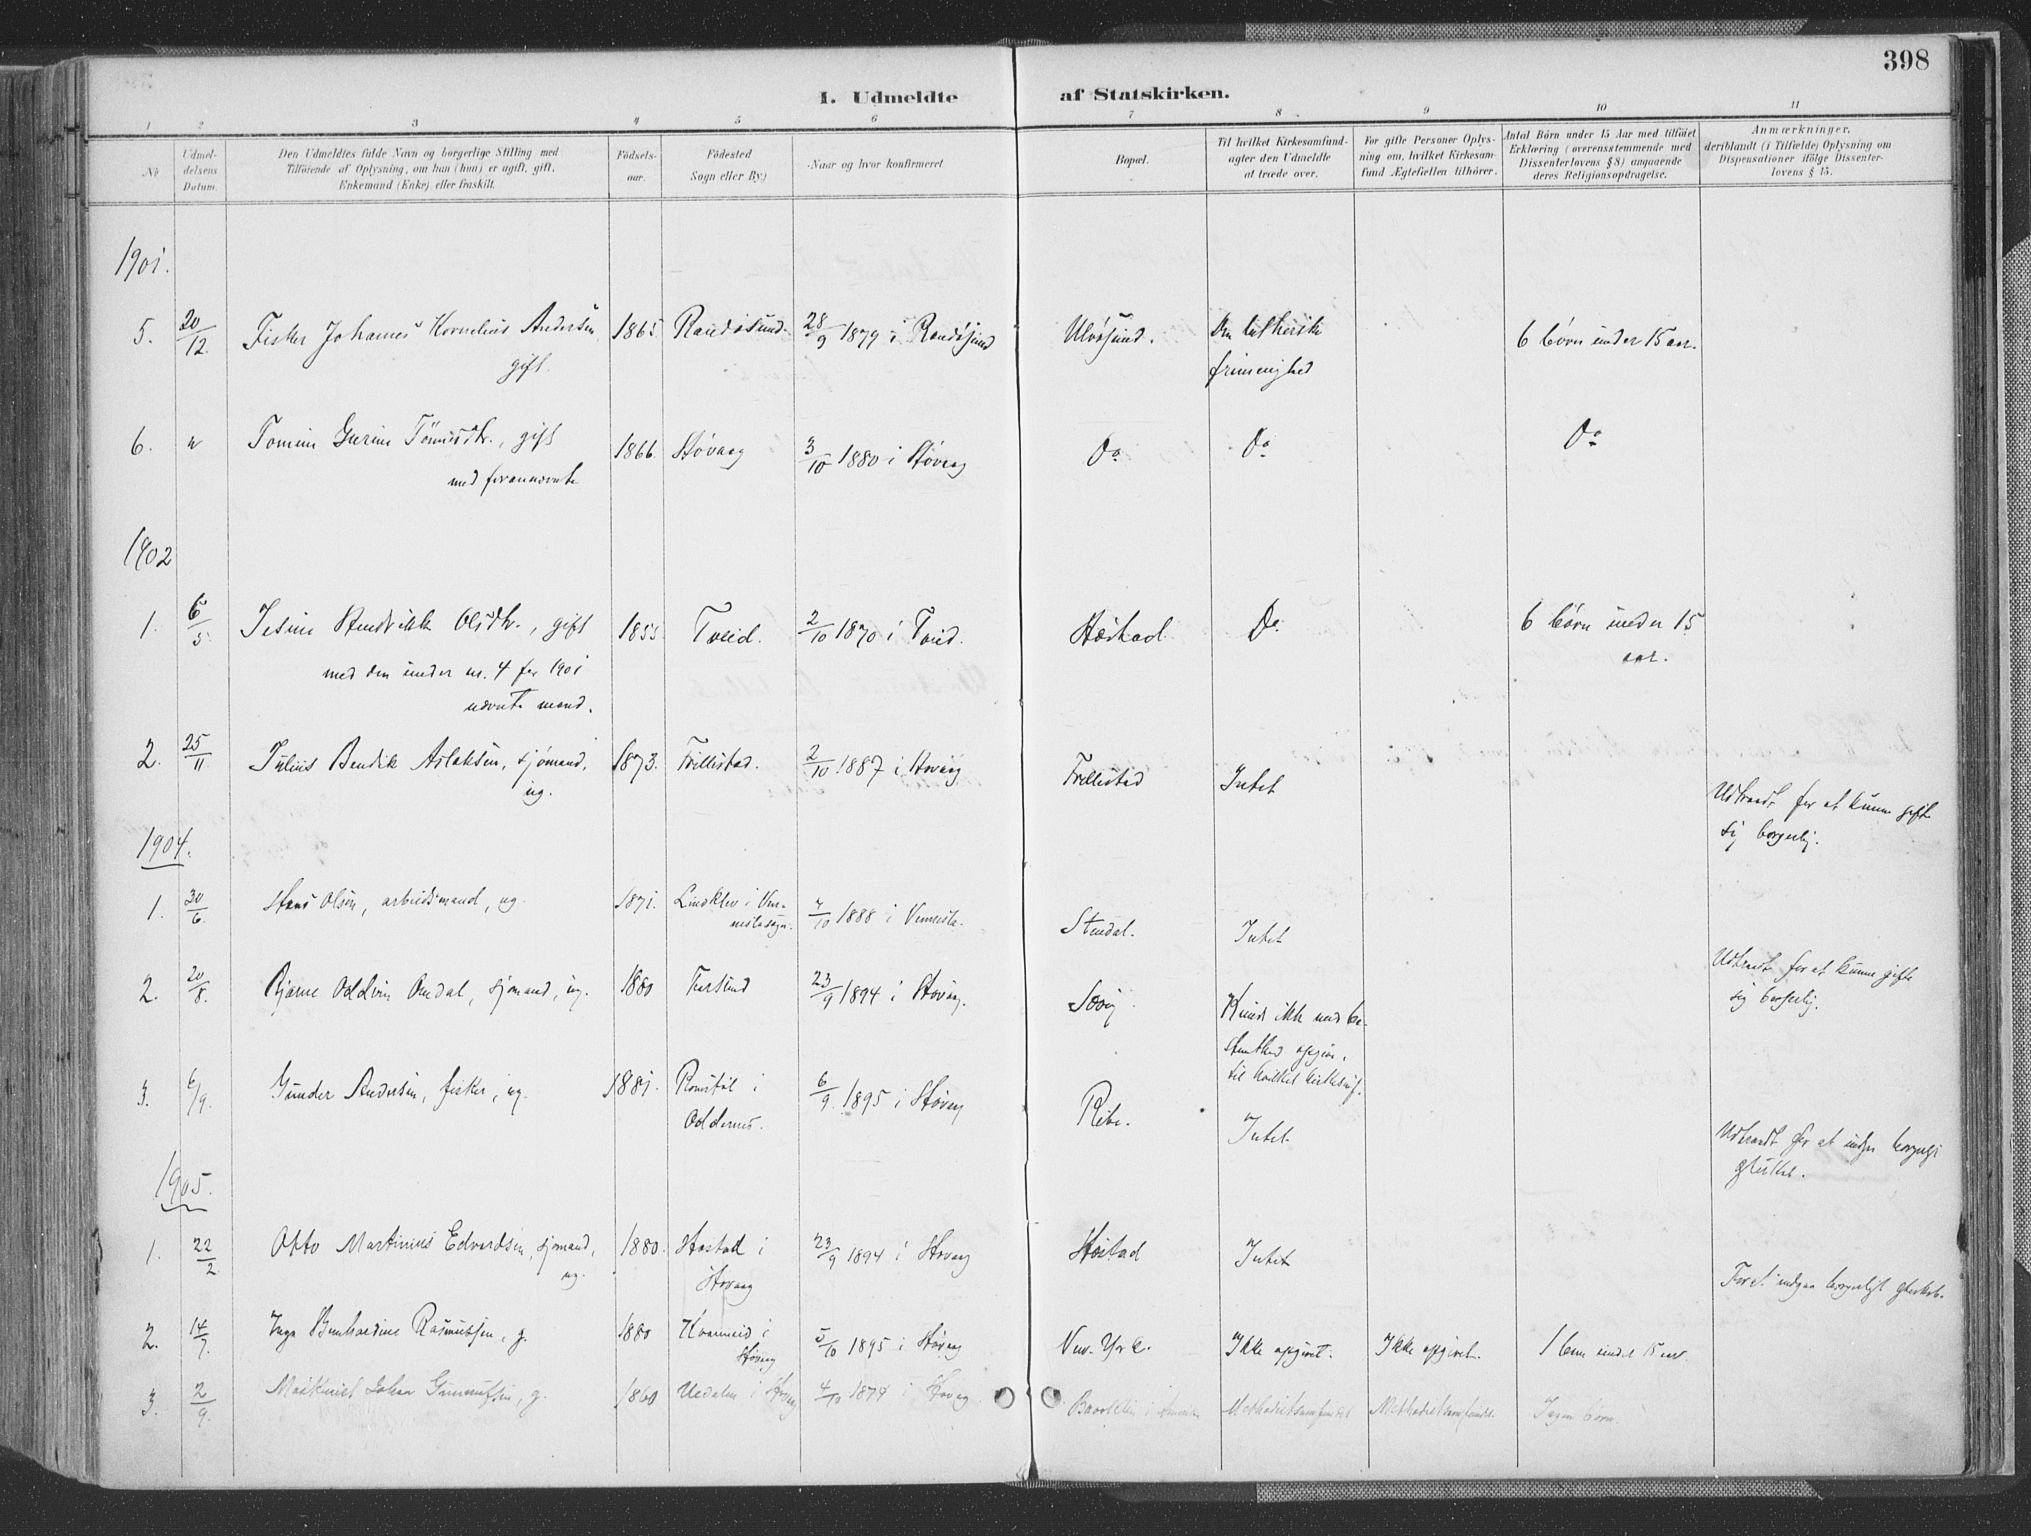 398
I. Udmeldte af Statskirken.
1 2 3 4 5 6 7 8 9 10 11
No
Udmeldelsens Datum.
Den Udmeldtes fulde Navn og borgerlige Stilling med
Tilföiende af Oplysning, om han (hun) er ugift, gift,
Enkemand (Enke) eller fraskilt.
Födselsaar.
Födested
Sogn eller By.)
Naar og hvor konfirmeret.
Bopæl.
Til hvilket Kirkesamfund-
agter den Udmeldte
at træde over.
For gifte Personer Oplys-
ning om, hvilket Kirkesam-
fund Ægtefællen tilhörer.
Antal Börn under 15 Aar med tilföiet
Erklæring (overensstemmende med
Dissenterlovens § 8) angaaende
deres Religionsopdragelse.
Anmærkninger,
deriblandt (i Tilfælde) Oplysning om
Dispensationer ifölge Dissenter-
lovens § 15.
1901.
5. 20/12 Fisker Johannes Kornelius Andersen, 1865 Randøsund. 28/9 1879 i Randøsund Ulvøsund. Den lutherske 6 børn under 15 aar.
gift. frimenighed
6. " Gurine Tømesdtr., gift 1866. Høvaag 3/10 1880 i Høvaag Do Do Do
med forannævnte
1902
1. 6/5 Hendrikke Olsdtr., gift 1855 Tveid. 2/10 1870 i Tveid. Hæstad Do 6 børn under 15
med den under nr. 4 for 1901 aar.
nævnte mand.
2. 25/11 Julius Bendik Aslaksen, sjømand, 1873. Trellestad. 2/10 1887 i Høvaag Trellestad Intet
ug. Udtraadt for at kunne gifte
sig borgerlig.
1904.
1. 30/6 Hans Olsen, arbeidsmand, ug. 1871. i Ven- 7/10 1888 i Vennesla. Stendal. Intet
neslasogn. Udtraadt for at kunne gifte
2. 20/8. Bjarne Oddvin Omdal, sjømand, ug. 1880 Farsund 23/9 1894 i Høvaag. Kunde ikke med be-
sig borgerlig.
stemthed opgive,
til hvilket kirkesamf.
3. 6/9. Gunder Andersen, fisker, ug. 1881. Romstøl i 6/9 1895 i Høvaag Ribe. Intet.
Oddernes. Udtraadt for at indgaa borgerligt
1905.
1. 22/2 Otto Martinius Edvardsen, sjømand, 1880. Hæstad i 23/9 1894 i Høvaag Hæstad Intet
ug. Høvaag For at indgaa borgerligt
2. 14/7. Inga Bernhardine Rasmussen, g. 1880 i 5/10 1895 i Høvaag New-York. Ikke opgivet. Ikke opgivet. 1 barn under 15 aar.
Høvaag
3. 2/9. Maskinist Johan Gunnufsen, g. 1860 i Høvaag 4/10 1874 i Høvaag i Amerika Methodistsamfundet Methodistsamfundet. Ingen børn.